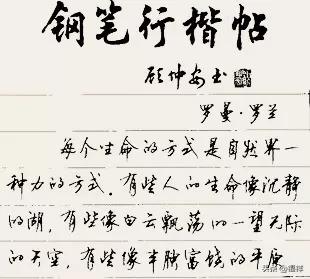 钢笔行楷帖
顾仲安书
罗曼·罗兰
每个生命的方式是自然界一
种力的方式。有些人的生命像沉静
的湖，有些像白云飘荡的一望无际
的天空，有些像丰腴富饶的平原
头条